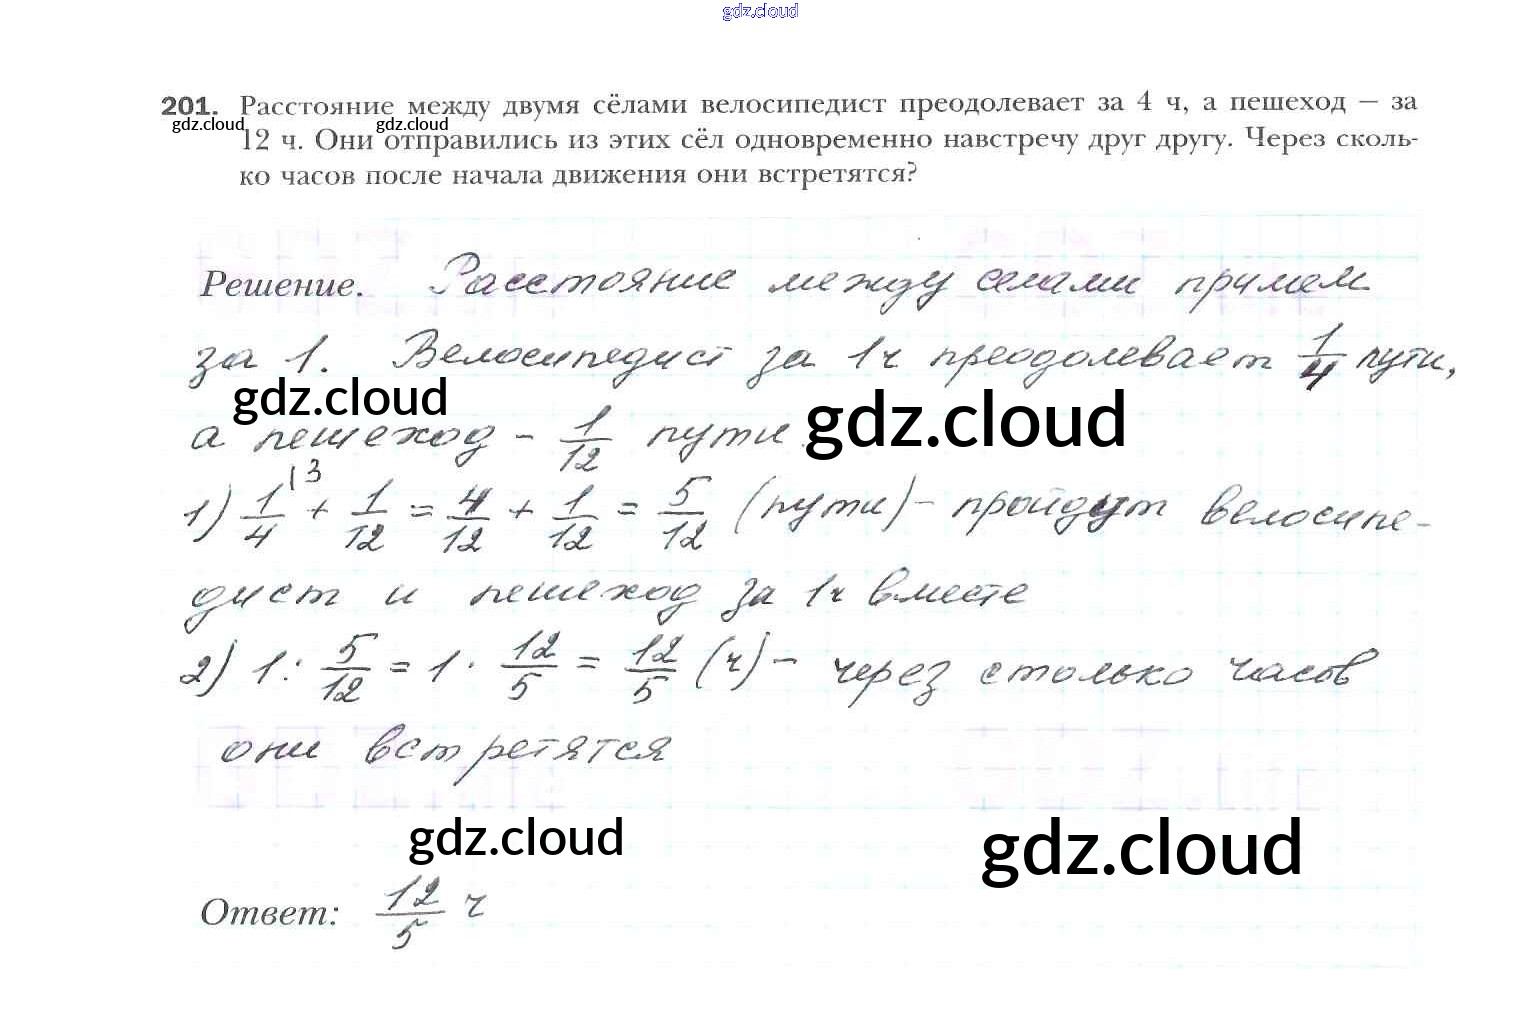 gdz.cloud
201. Расстояние между двумя сёлами велосипедист преодолевает за 4 ч, а пешеход – за
gdz.cloud gdz.cloud
12 ч. Они отправились из этих сёл одновременно навстречу друг другу. Через сколь-
ко часов после начала движения они встретятся?
Решение. Расстояние между селами примем
за 1. Велосипедист за 1ч преодолевает 1/4 пути,
gdz.cloud gdz.cloud
а пешеход – 1/12 пути.
1) 1/4 (3 + 1/12 = 4/12 + 1/12 = 5/12 (пути) – пройдут велосипе-
дист и пешеход за 1ч вместе
2) 1 : 5/12 = 1 · 12/5 = 12/5 (ч) – через столько часов
они встретятся
gdz.cloud gdz.cloud
Ответ: 12/5 ч